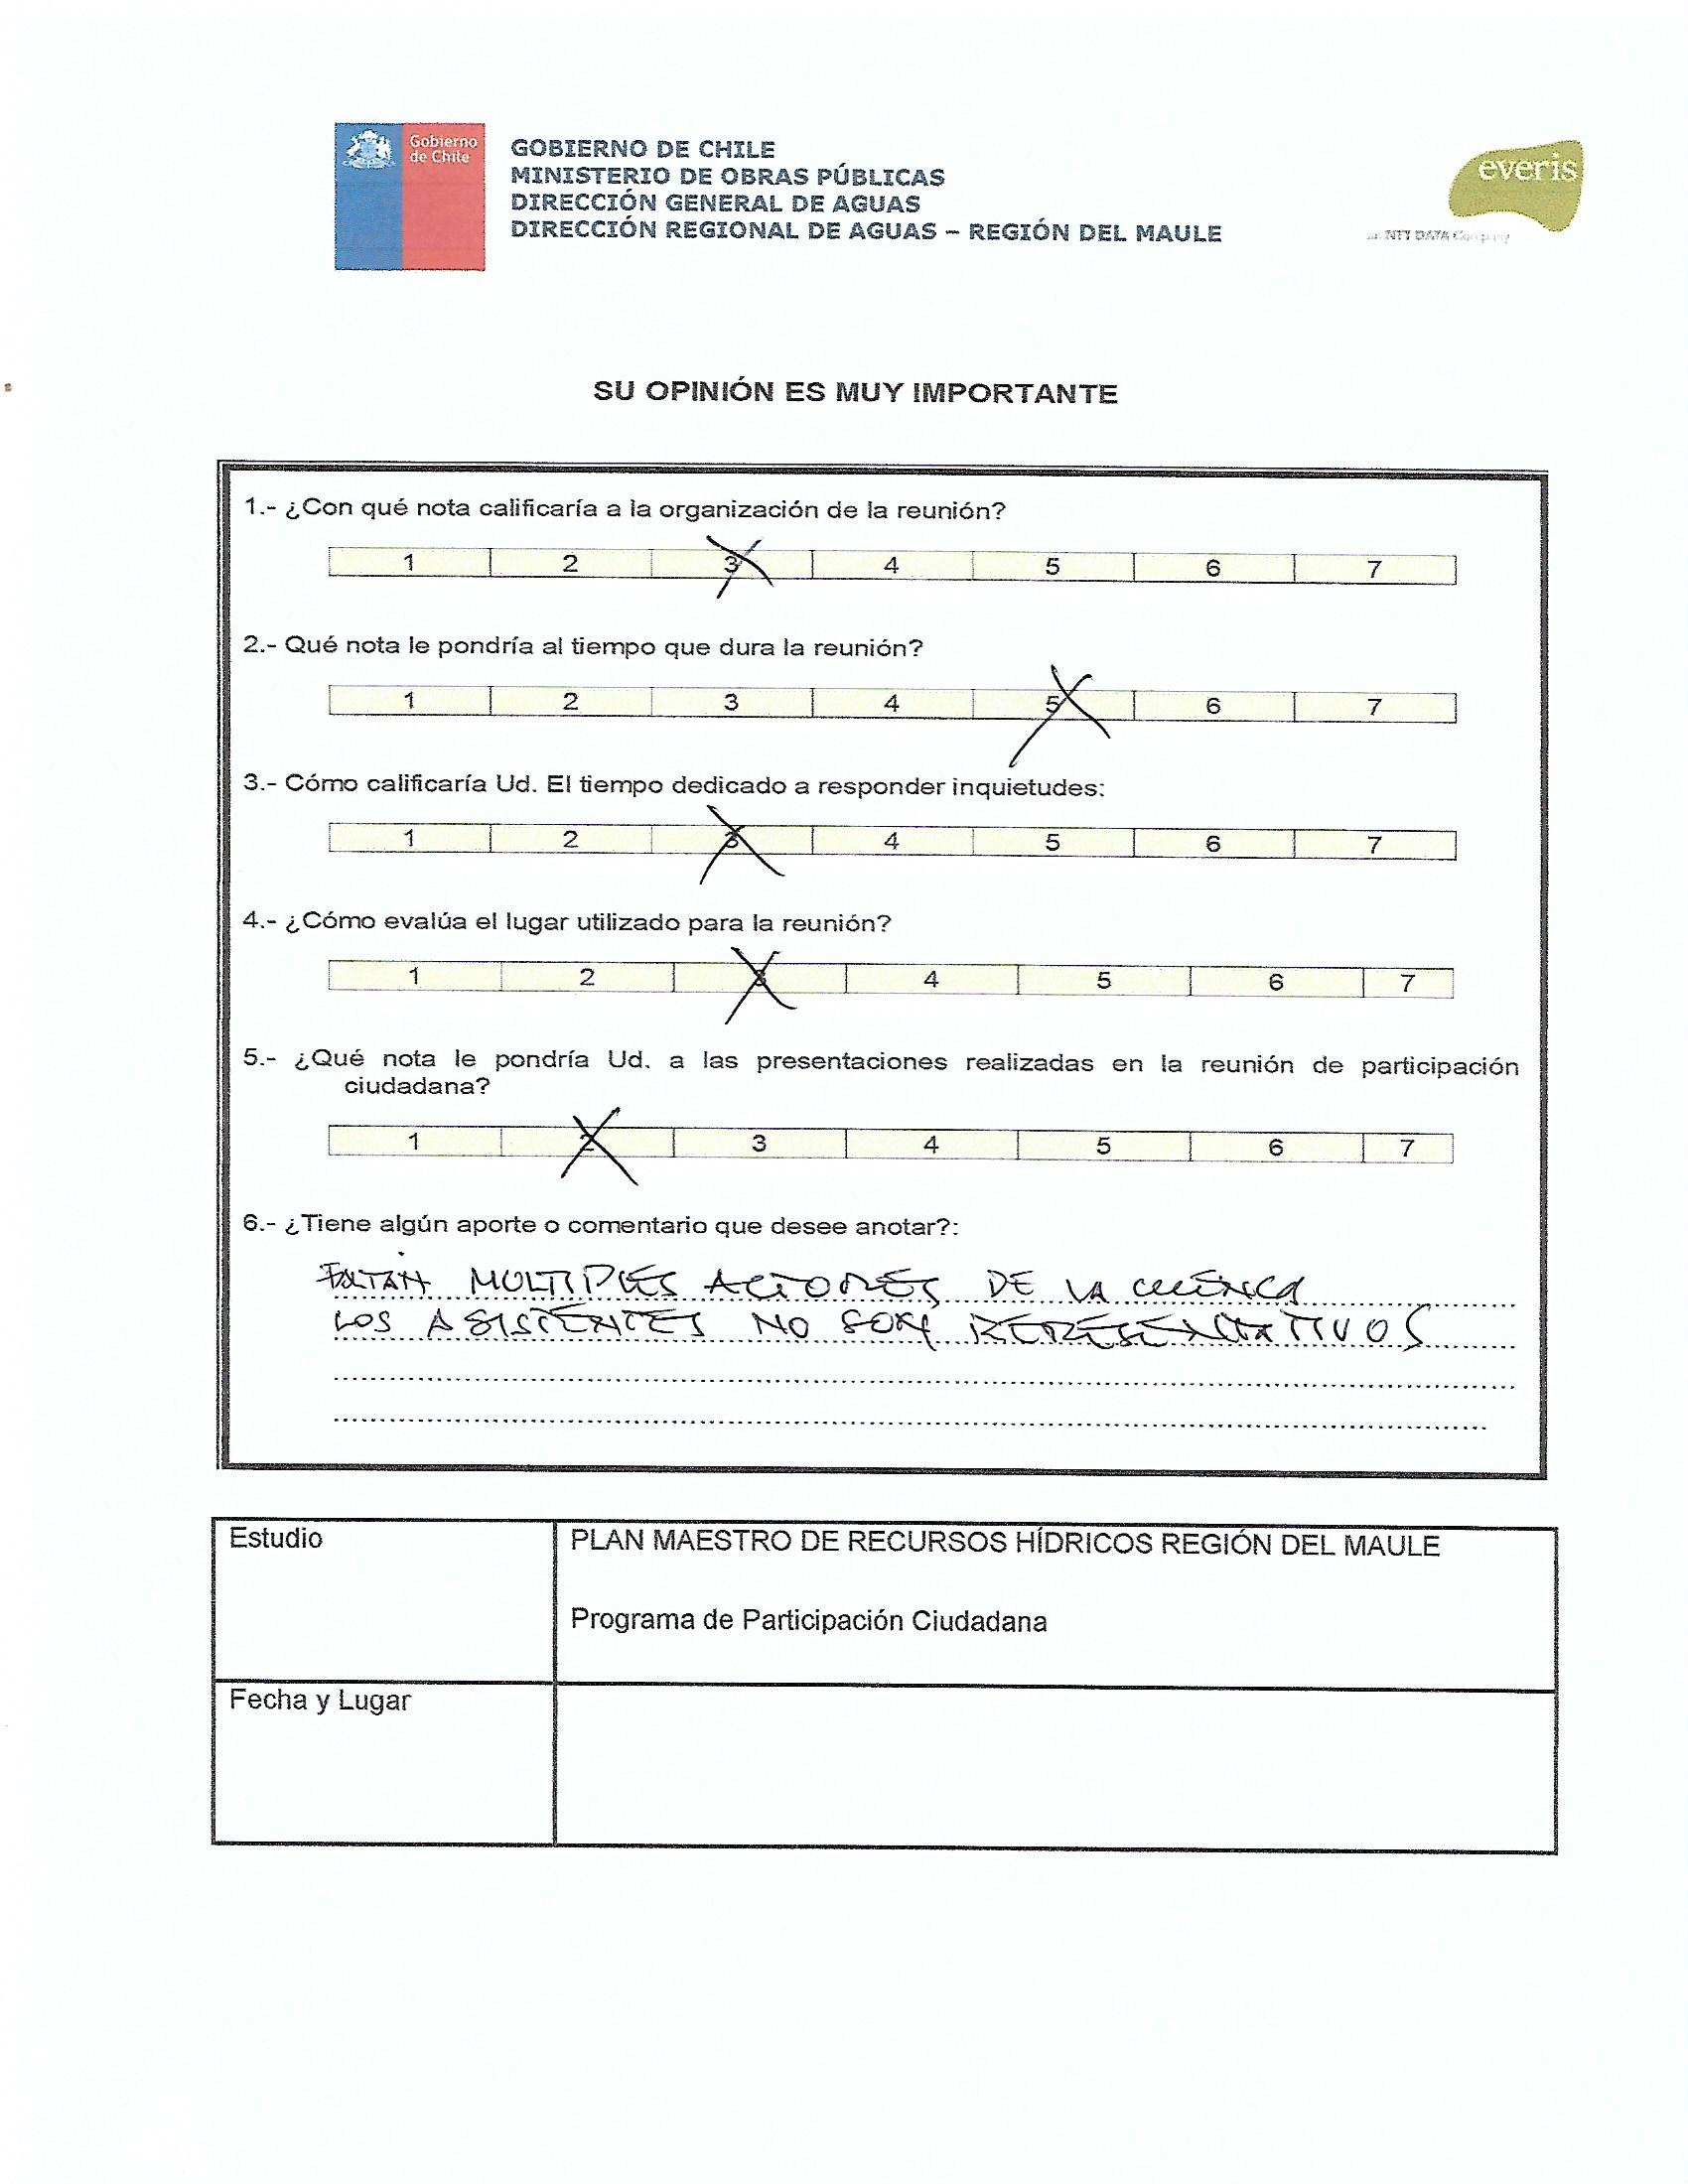 Gobierno
de Chile
GOBIERNO DE CHILE
MINISTERIO DE OBRAS PÚBLICAS
DIRECCIÓN GENERAL DE AGUAS
DIRECCIÓN REGIONAL DE AGUAS – REGIÓN DEL MAULE
everis
an NTT DATA Company
SU OPINIÓN ES MUY IMPORTANTE
1.- ¿Con qué nota calificaría a la organización de la reunión?
1 2 3 4 5 6 7
2.- Qué nota le pondría al tiempo que dura la reunión?
1 2 3 4 5 6 7
3.- Cómo calificaría Ud. El tiempo dedicado a responder inquietudes:
1 2 3 4 5 6 7
4.- ¿Cómo evalúa el lugar utilizado para la reunión?
1 2 3 4 5 6 7
5.- ¿Qué nota le pondría Ud. a las presentaciones realizadas en la reunión de participación
ciudadana?
1 2 3 4 5 6 7
6.- ¿Tiene algún aporte o comentario que desee anotar?:
FALTAN MULTIPLES ACTORES DE LA CUENCA
LOS ASISTENTES NO SON REPRESENTATIVOS
Estudio PLAN MAESTRO DE RECURSOS HÍDRICOS REGIÓN DEL MAULE
Programa de Participación Ciudadana
Fecha y Lugar